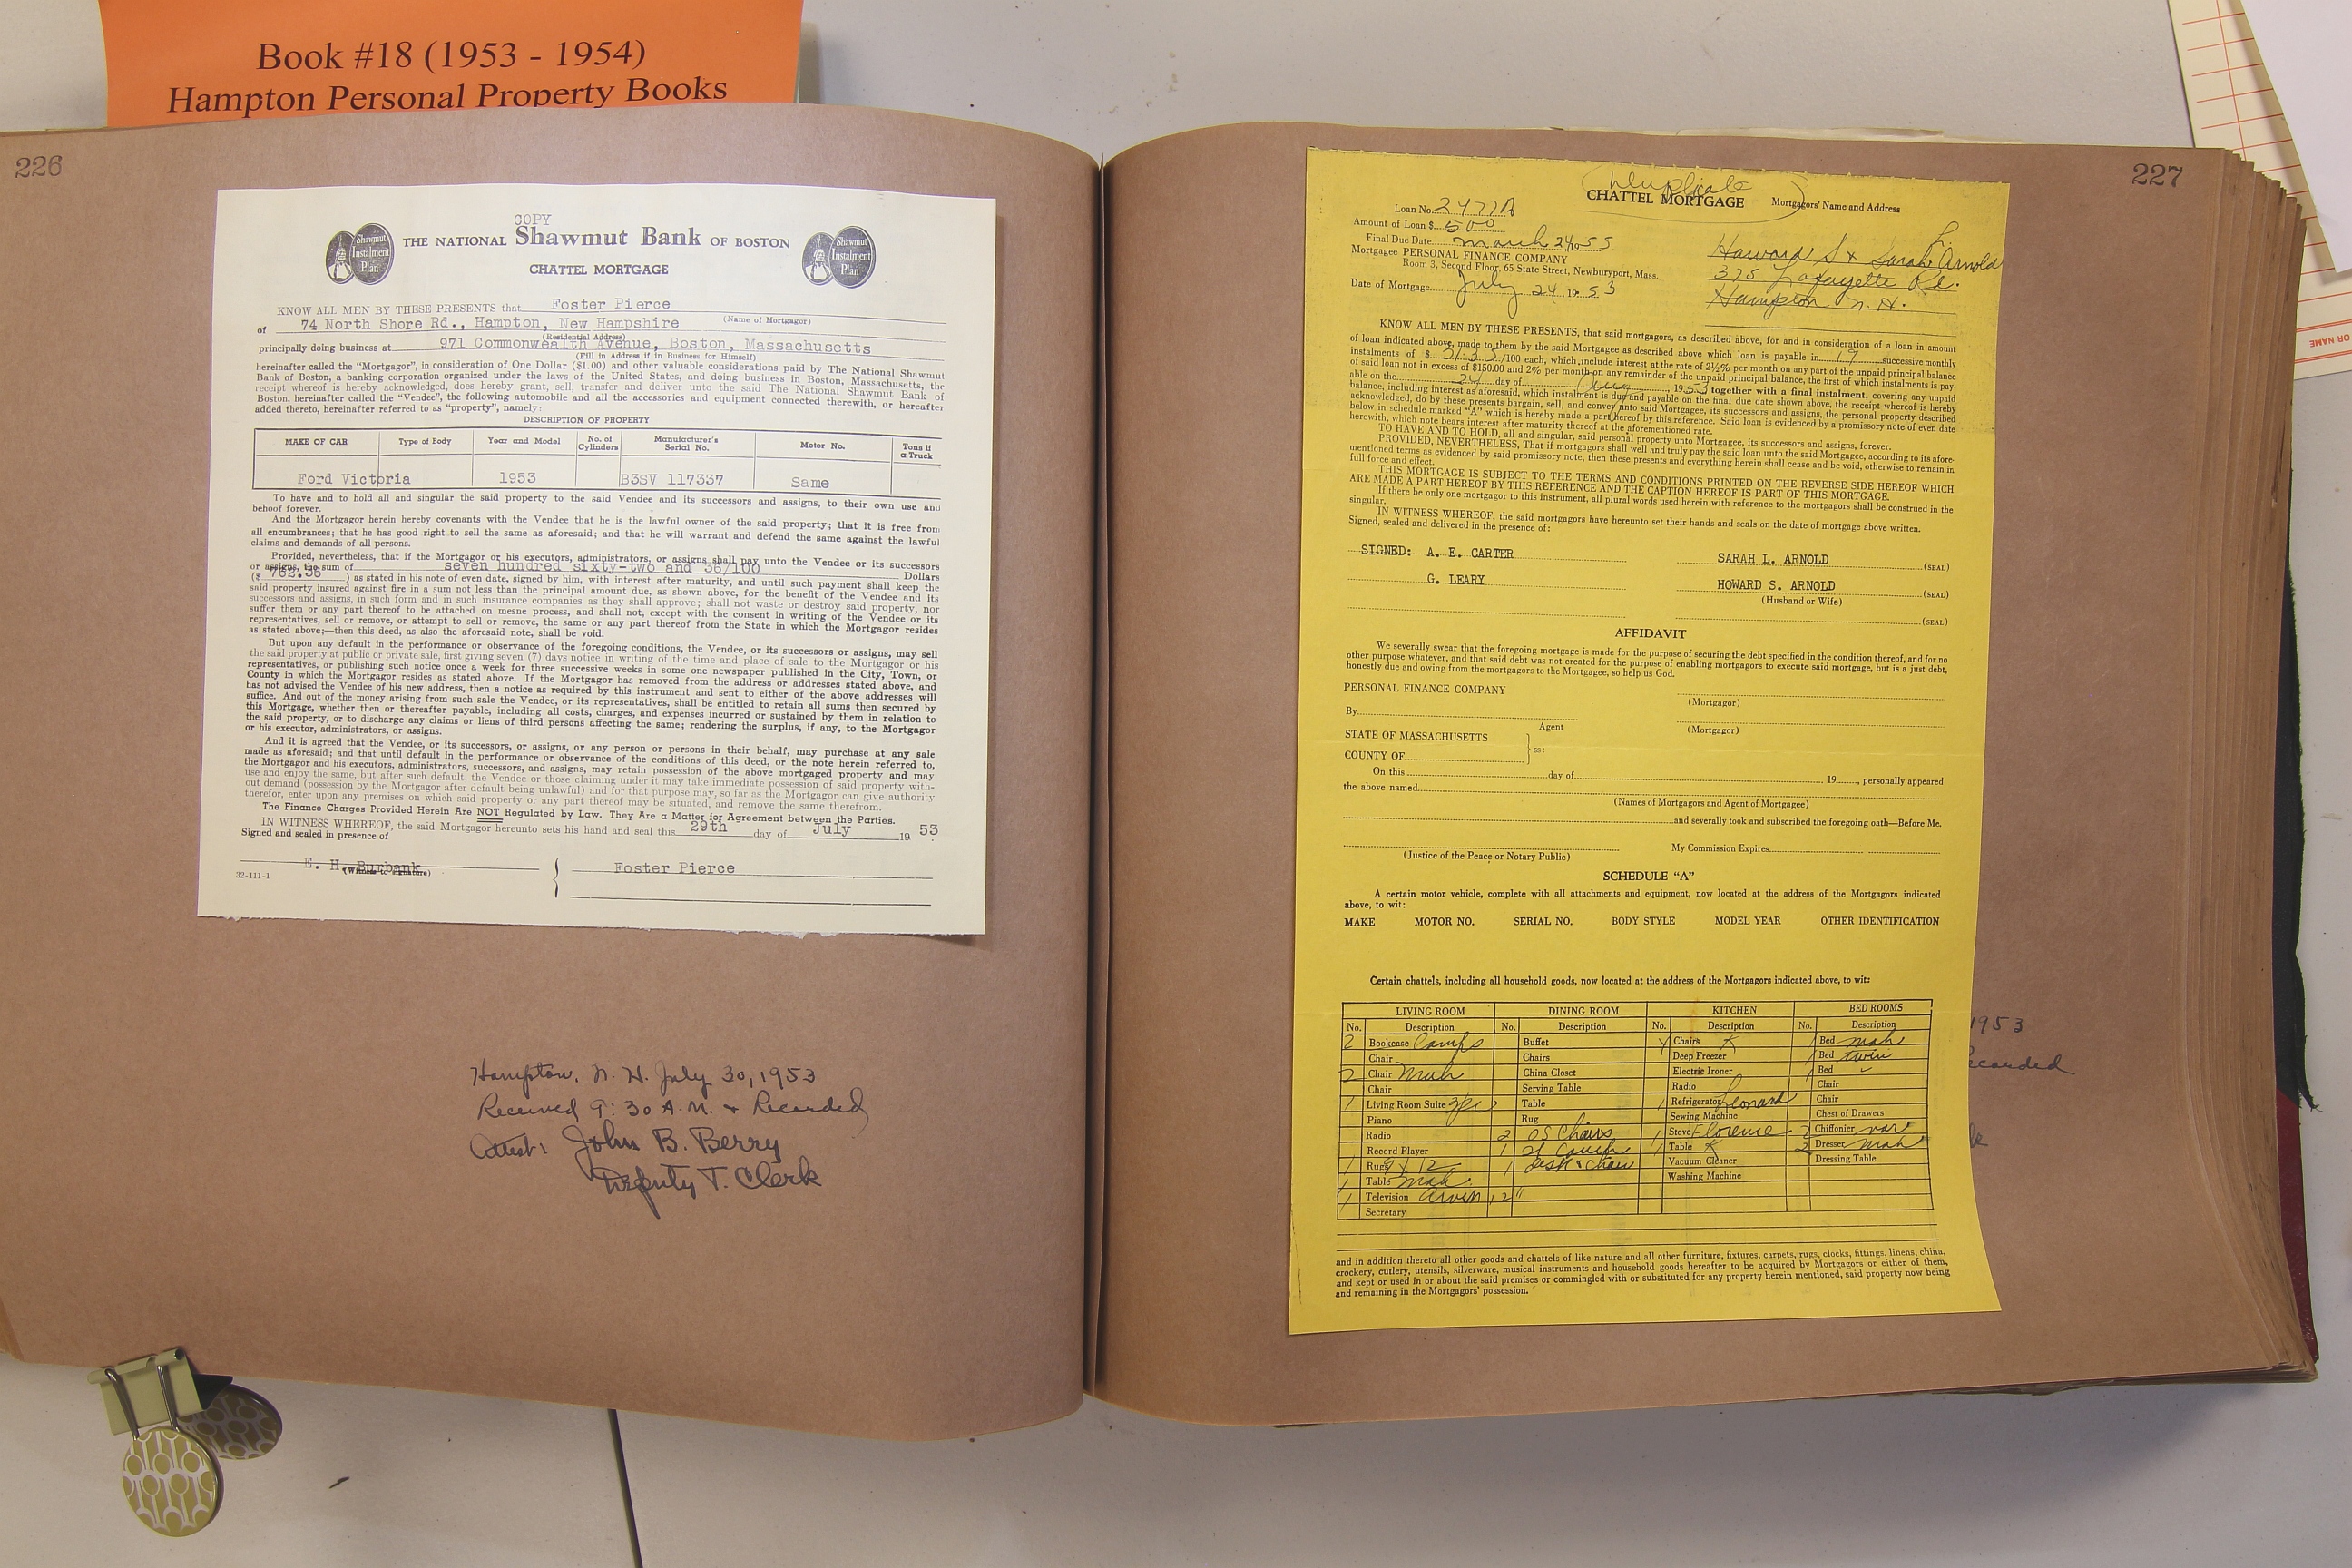 Book #18 (1953 - 1954)
Hampton Personal Property Books
226
COPY
Shawmut Instalment Plan
THE NATIONAL Shawmut Bank OF BOSTON
Shawmut Instalment Plan
CHATTEL MORTGAGE
KNOW ALL MEN BY THESE PRESENTS that Foster Pierce
(Name of Mortgagor)
of 74 North Shore Rd., Hampton, New Hampshire
(Residential Address)
principally doing business at 971 Commonwealth Avenue, Boston, Massachusetts
(Fill in Address if in Business for Himself)
hereinafter called the "Mortgagor", in consideration of One Dollar ($1.00) and other valuable considerations paid by The National Shawmut
Bank of Boston, a banking corporation organized under the laws of the United States, and doing business in Boston, Massachusetts, the
receipt whereof is hereby acknowledged, does hereby grant, sell, transfer and deliver unto the said The National Shawmut Bank of
Boston, hereinafter called the "Vendee", the following automobile and all the accessories and equipment connected therewith, or hereafter
added thereto, hereinafter referred to as "property", namely:
DESCRIPTION OF PROPERTY
MAKE OF CAR Type of Body Year and Model No. of Cylinders Manufacturer's Serial No. Motor No. Tons if a Truck
Ford Victoria 1953 B3SV 117337 Same
To have and to hold all and singular the said property to the said Vendee and its successors and assigns, to their own use and
behoof forever.
And the Mortgagor herein hereby covenants with the Vendee that he is the lawful owner of the said property; that it is free from
all encumbrances; that he has good right to sell the same as aforesaid; and that he will warrant and defend the same against the lawful
claims and demands of all persons.
Provided, nevertheless, that if the Mortgagor or his executors, administrators, or assigns shall pay unto the Vendee or its successors
or assigns, the sum of seven hundred sixty-two and 36/100 Dollars
($ 762.36 ) as stated in his note of even date, signed by him, with interest after maturity, and until such payment shall keep the
said property insured against fire in a sum not less than the principal amount due, as shown above, for the benefit of the Vendee and its
successors and assigns, in such form and in such insurance companies as they shall approve; shall not waste or destroy said property, nor
suffer them or any part thereof to be attached on mesne process, and shall not, except with the consent in writing of the Vendee or its
representatives, sell or remove, or attempt to sell or remove, the same or any part thereof from the State in which the Mortgagor resides
as stated above;—then this deed, as also the aforesaid note, shall be void.
But upon any default in the performance or observance of the foregoing conditions, the Vendee, or its successors or assigns, may sell
the said property at public or private sale, first giving seven (7) days notice in writing of the time and place of sale to the Mortgagor or his
representatives, or publishing such notice once a week for three successive weeks in some one newspaper published in the City, Town, or
County in which the Mortgagor resides as stated above. If the Mortgagor has removed from the address or addresses stated above, and
has not advised the Vendee of his new address, then a notice as required by this instrument and sent to either of the above addresses will
suffice. And out of the money arising from such sale the Vendee, or its representatives, shall be entitled to retain all sums then secured by
this Mortgage, whether then or thereafter payable, including all costs, charges, and expenses incurred or sustained by them in relation to
the said property, or to discharge any claims or liens of third persons affecting the same; rendering the surplus, if any, to the Mortgagor
or his executor, administrators, or assigns.
And it is agreed that the Vendee, or its successors, or assigns, or any person or persons in their behalf, may purchase at any sale
made as aforesaid; and that until default in the performance or observance of the conditions of this deed, or the note herein referred to,
the Mortgagor and his executors, administrators, successors, and assigns, may retain possession of the above mortgaged property and may
use and enjoy the same, but after such default, the Vendee or those claiming under it may take immediate possession of said property with-
out demand (possession by the Mortgagor after default being unlawful) and for that purpose may, so far as the Mortgagor can give authority
therefor, enter upon any premises on which said property or any part thereof may be situated, and remove the same therefrom.
The Finance Charges Provided Herein Are NOT Regulated by Law. They Are a Matter for Agreement between the Parties.
IN WITNESS WHEREOF, the said Mortgagor hereunto sets his hand and seal this 29th day of July 19 53
Signed and sealed in presence of
E. H. Burbank Foster Pierce
(Witness to signature)
32-111-1
Hampton, N. H. July 30, 1953
Received 9:30 A.M. & Recorded
Attest: John B. Berry
Deputy T. Clerk
227
Duplicate
CHATTEL MORTGAGE
Mortgagors' Name and Address
Loan No. 2477A
Amount of Loan $ 500
Final Due Date March 24 1955
Mortgagee PERSONAL FINANCE COMPANY
Room 3, Second Floor, 65 State Street, Newburyport, Mass.
Date of Mortgage July 24, 1953
L
Howard S & Sarah Arnold
375 Lafayette Rd.
Hampton N. H.
KNOW ALL MEN BY THESE PRESENTS, that said mortgagors, as described above, for and in consideration of a loan in amount
of loan indicated above, made to them by the said Mortgagee as described above which loan is payable in 19 successive monthly
instalments of $ 31.33/100 each, which include interest at the rate of 2½% per month on any part of the unpaid principal balance
of said loan not in excess of $150.00 and 2% per month on any remainder of the unpaid principal balance, the first of which instalments is pay-
able on the 24 day of Aug 1953 together with a final instalment, covering any unpaid
balance, including interest as aforesaid, which instalment is due and payable on the final due date shown above, the receipt whereof is hereby
acknowledged, do by these presents bargain, sell, and convey unto said Mortgagee, its successors and assigns, the personal property described
below in schedule marked "A" which is hereby made a part hereof by this reference. Said loan is evidenced by a promissory note of even date
herewith, which note bears interest after maturity thereof at the aforementioned rate.
TO HAVE AND TO HOLD, all and singular, said personal property unto Mortgagee, its successors and assigns, forever.
PROVIDED, NEVERTHELESS, That if mortgagors shall well and truly pay the said loan unto the said Mortgagee, according to its afore-
mentioned terms as evidenced by said promissory note, then these presents and everything herein shall cease and be void, otherwise to remain in
full force and effect.
THIS MORTGAGE IS SUBJECT TO THE TERMS AND CONDITIONS PRINTED ON THE REVERSE SIDE HEREOF WHICH
ARE MADE A PART HEREOF BY THIS REFERENCE AND THE CAPTION HEREOF IS PART OF THIS MORTGAGE.
If there be only one mortgagor to this instrument, all plural words used herein with reference to the mortgagors shall be construed in the
singular.
IN WITNESS WHEREOF, the said mortgagors have hereunto set their hands and seals on the date of mortgage above written.
Signed, sealed and delivered in the presence of:
SIGNED: A. E. CARTER SARAH L. ARNOLD (SEAL)
G. LEARY HOWARD S. ARNOLD (SEAL)
(Husband or Wife)
(SEAL)
AFFIDAVIT
We severally swear that the foregoing mortgage is made for the purpose of securing the debt specified in the condition thereof, and for no
other purpose whatever, and that said debt was not created for the purpose of enabling mortgagors to execute said mortgage, but is a just debt,
honestly due and owing from the mortgagors to the Mortgagee, so help us God.
PERSONAL FINANCE COMPANY
(Mortgagor)
By
Agent
(Mortgagor)
STATE OF MASSACHUSETTS
COUNTY OF ss:
On this day of 19 , personally appeared
the above named
(Names of Mortgagors and Agent of Mortgagee)
and severally took and subscribed the foregoing oath—Before Me.
(Justice of the Peace or Notary Public) My Commission Expires
SCHEDULE "A"
A certain motor vehicle, complete with all attachments and equipment, now located at the address of the Mortgagors indicated
above, to wit:
MAKE MOTOR NO. SERIAL NO. BODY STYLE MODEL YEAR OTHER IDENTIFICATION
Certain chattels, including all household goods, now located at the address of the Mortgagors indicated above, to wit:
LIVING ROOM DINING ROOM KITCHEN BED ROOMS
No. Description No. Description No. Description No. Description
2 Bookcase Lamps Buffet Y Chairs K 1 Bed mah
Chair Chairs Deep Freezer 1 Bed twin
2 Chair Mah China Closet Electric Ironer 1 Bed "
Chair Serving Table Radio Chair
1 Living Room Suite 3pc Table 1 Refrigerator Leonard Chair
Piano Rug Sewing Machine Chest of Drawers
Radio 2 OS Chairs 1 Stove Florence 2 Chiffonier var
Record Player 1 Couch 1 Table K 2 Dresser mah
1 Rug 9 x 12 1 Desk & Chair Vacuum Cleaner Dressing Table
1 Table Mah. Washing Machine
1 Television Arvin 12"
Secretary
and in addition thereto all other goods and chattels of like nature and all other furniture, fixtures, carpets, rugs, clocks, fittings, linens, china,
crockery, cutlery, utensils, silverware, musical instruments and household goods hereafter to be acquired by Mortgagors or either of them,
and kept or used in or about the said premises or commingled with or substituted for any property herein mentioned, said property now being
and remaining in the Mortgagors' possession.
1953
ecorded